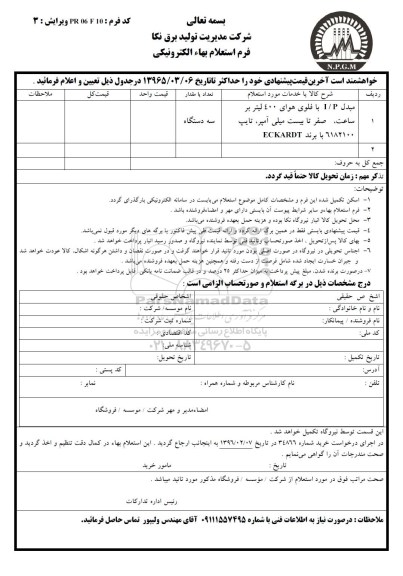 بسمه تعالی
شرکت مدیریت تولید برق نکا
فرم استعلام بهاء الکترونیکی
کد فرم : PR 06 F 10 ویرایش : 3
N.P.G.M
خواهشمند است آخرین قیمت پیشنهادی خود را حداکثر تا تاریخ ۱۳۹۶۵/۰۳/۰۶ درجدول ذیل تعیین و اعلام فرمائید .
ردیف شرح کالا یا خدمات مورد استعلام تعداد یا مقدار قیمت واحد قیمت کل ملاحظات
۱ مبدل I / P با فلوی هوای ۴۰۰ لیتر بر ساعت، صفر تا بیست میلی آمپر، تایپ ۶۱۸۲۱۰۰ با برند ECKARDT سه دستگاه
۲
جمع کل به حروف:
تذکر مهم : زمان تحویل کالا حتماً قید گردد.
توضیحات:
۱- اسکن تکمیل شده این فرم و مشخصات کامل موضوع استعلام می بایست در سامانه الکترونیکی بارگذاری گردد.
۲- فرم استعلام بهاء و سایر شرایط پیوست آن بایستی دارای مهر و امضاء فروشنده باشد.
۳- محل تحویل کالا انبار نیروگاه نکا بوده و هزینه حمل بعهده فروشنده می باشد.
۴- قیمت پیشنهادی بایستی فقط در همین برگ ارائه گردد و ارائه قیمت طی پیش فاکتور یا برگه های دیگر مورد قبول نمی باشد.
۵- بهای کالا پس از تحویل ، اخذ صورتحساب و تائید فنی توسط نماینده نیروگاه و صدور رسید انبار پرداخت خواهد شد .
۶- اجناس تحویلی در نیروگاه در صورت اصلی بودن مورد تائید قرار خواهند گرفت و در صورت نقصان و داشتن هرگونه اشکال، کالا عودت خواهد شد و جبران خسارت ایجاد شده شامل فرصت از دست رفته و همچنین هزینه حمل بعهده فروشنده می باشد .
۷- درصورت برنده شدن، مبلغ پیش پرداخت به میزان حداکثر ۲۵ درصد و در قالب ضمانت نامه بانکی ، قابل پرداخت خواهد بود .
درج مشخصات ذیل در برگه استعلام و صورتحساب الزامی است :
اشخاص حقیقی
اشخاص حقوقی
نام و نام خانوادگی :
نام موسسه/ شرکت :
نام فروشنده / پیمانکار:
شماره ثبت شرکت :
کد ملی:
کد اقتصادی
شناسه ملی
تاریخ تکمیل :
تاریخ تحویل:
آدرس:
کد پستی :
تلفن :
نام کارشناس مربوطه و شماره همراه :
نمابر :
امضاء مدیر و مهر شرکت / موسسه / فروشگاه
ParsNamadData
پایگاه اطلاع رسانی مناقصه و مزایده
۰۲۱-۸۸۳۴۹۶۷۰-۵
این قسمت توسط نیروگاه تکمیل خواهد شد .
در اجرای درخواست خرید شماره ۳۴۸۶۶ در تاریخ ۱۳۹۶/۰۲/۰۷ به اینجانب ارجاع گردید . این استعلام بهاء در کمال دقت تنظیم و اخذ گردید و صحت مندرجات آن را گواهی می نمایم .
تاریخ :
مامور خرید
صحت مراتب فوق در مورد استعلام از شرکت / مؤسسه / فروشگاه مذکور مورد تائید میباشد .
رئیس اداره تدارکات
ملاحظات : درصورت نیاز به اطلاعات فنی با شماره ۰۹۱۱۱۵۵۷۴۹۵ آقای مهندس ولیپور تماس حاصل فرمائید.